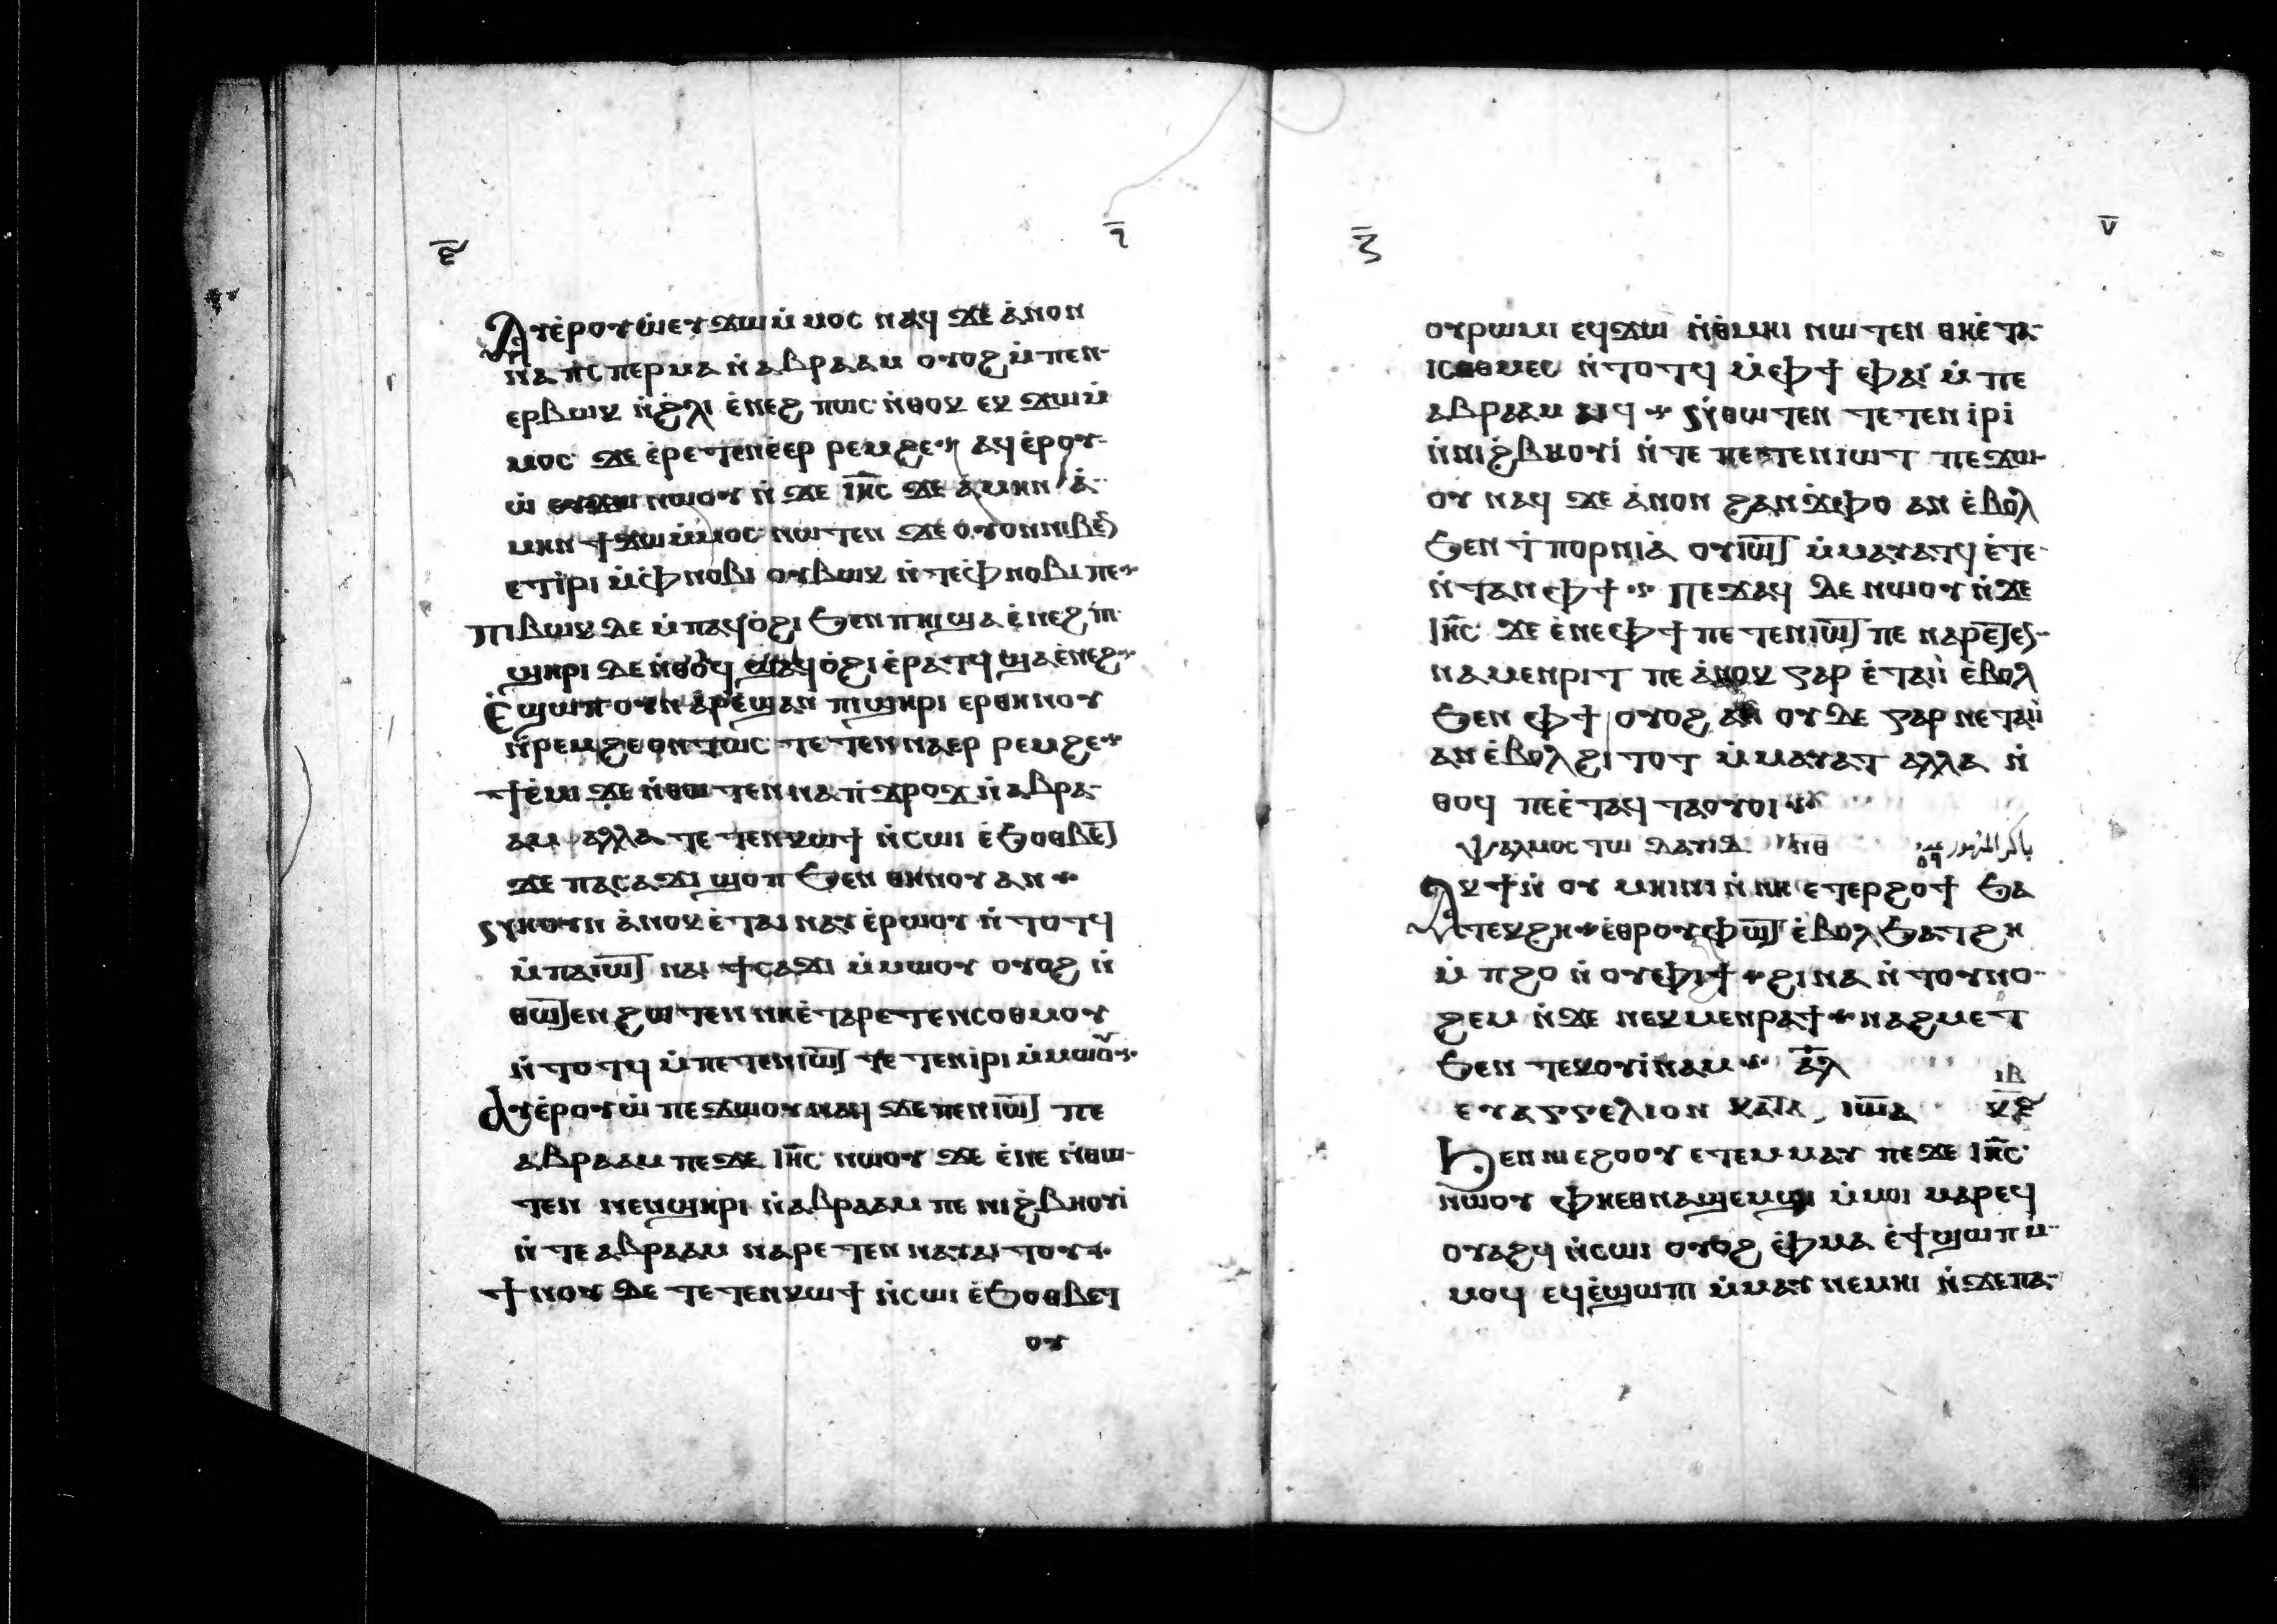 ⲁⲩⲉ̀ⲣⲟⲩⲱ̀ ⲉⲩϫⲱ ⲙ̀ⲙⲟⲥ ⲛⲁϥ ϫⲉ ⲁ̀ⲛⲟⲛ
ⲛⲁ ⲡ̀ⲥⲡⲉⲣⲙⲁ ⲛ̀ⲁⲃⲣⲁⲁⲙ ⲟⲩⲟϩ ⲙ̀ⲡⲉⲛ
ⲉⲣⲃⲱⲕ ⲛ̀ϩ̀ⲗⲓ ⲉ̀ⲛⲉϩ ⲡⲱⲥ ⲛ̀ⲑⲟⲕ ⲉⲕ ϫⲱ ⲙ̀
ⲙⲟⲥ ϫⲉ ⲉ̀ⲣⲉⲧⲉⲛⲉ̀ⲉⲣ ⲣⲉⲙϩⲉ ⲁϥⲉ̀ⲣⲟⲩ
ⲱ̀ ⲛⲱⲟⲩ ⲛ̀ϫⲉ ⲓⲏ̅ⲥ ϫⲉ ⲁ̀ⲙⲏⲛ ⲁ̀
ⲙⲏⲛ ϯϫⲱ ⲙ̀ⲙⲟⲥ ⲛⲱⲧⲉⲛ ϫⲉ ⲟⲩⲟⲛ ⲛⲓⲃⲉⲛ
ⲉⲧⲓ̀ⲣⲓ ⲙ̀ⲫ̀ⲛⲟⲃⲓ ⲟⲩⲃⲱⲕ ⲛ̀ⲧⲉⲫ̀ⲛⲟⲃⲓ ⲡⲉ
ⲡⲓⲃⲱⲕ ⲇⲉ ⲙ̀ⲡⲁϥⲟ̀ϩⲓ ϧⲉⲛ ⲡⲏⲓ ϣⲁ ⲉ̀ⲛⲉϩ ⲡⲓ
ϣⲏⲣⲓ ⲇⲉ ⲛ̀ⲑⲟϥ ϣⲁϥⲟ̀ϩⲓ ⲉ̀ⲣⲁⲧϥ ϣⲁ ⲉ̀ⲛⲉϩ
ⲉ̀ϣⲱⲡ ⲟⲩⲛ ⲁⲣⲉϣⲁⲛ ⲡⲓϣⲏⲣⲓ ⲉⲣⲑⲏⲛⲟⲩ
ⲛ̀ⲣⲉⲙϩⲉ ⲟⲛⲧⲱⲥ ⲧⲉⲧⲉⲛⲛⲁⲉⲣ ⲣⲉⲙϩⲉ
ϯⲉ̀ⲙⲓ ϫⲉ ⲛ̀ⲑⲱⲧⲉⲛ ⲛⲁ ⲡ̀ϫⲣⲟϫ ⲛ̀ⲁⲃⲣⲁ
ⲁⲙ ⲁⲗⲗⲁ ⲧⲉⲧⲉⲛⲕⲱϯ ⲛ̀ⲥⲱⲓ ⲉ̀ϧⲟⲑⲃⲉⲧ
ϫⲉ ⲡⲁⲥⲁϫⲓ ϣⲟⲡ ϧⲉⲛ ⲑⲏⲛⲟⲩ ⲁⲛ
ⲁ̀ⲛⲟⲕ ⲉ̀ⲧⲁⲓⲛⲁⲩ ⲉ̀ⲣⲱⲟⲩ ⲛ̀ⲧⲟⲧϥ
ⲙ̀ⲡⲁⲓⲱ̅ⲧ ⲛⲁⲓ ϯⲥⲁϫⲓ ⲙ̀ⲙⲱⲟⲩ ⲟⲩⲟϩ ⲛ̀
ⲑⲱ̅ⲧⲉⲛ ϩⲱⲧⲉⲛ ⲛⲏ ⲉ̀ⲧⲁⲣⲉⲧⲉⲛⲥⲟⲑⲙⲟⲩ
ⲛ̀ⲧⲟⲧϥ ⲙ̀ⲡⲉⲧⲉⲛⲓⲱ̅ⲧ ⲧⲉⲧⲉⲛⲓ̀ⲣⲓ ⲙ̀ⲙⲱⲟⲩ
ⲁⲩⲉ̀ⲣⲟⲩⲱ̀ ⲡⲉϫⲱⲟⲩ ⲛⲁϥ ϫⲉ ⲡⲉⲛⲓⲱ̅ⲧ ⲡⲉ
ⲁⲃⲣⲁⲁⲙ ⲡⲉϫⲉ ⲓⲏ̅ⲥ ⲛⲱⲟⲩ ϫⲉ ⲉ̀ⲛⲉ ⲛ̀ⲑⲱ
ⲧⲉⲛ ⲛⲉⲛϣⲏⲣⲓ ⲛ̀ⲁⲃⲣⲁⲁⲙ ⲡⲉ ⲛⲓϩ̀ⲃⲏⲟⲩⲓ̀
ⲛ̀ⲧⲉ ⲁⲃⲣⲁⲁⲙ ⲛⲁⲣⲉⲧⲉⲛ ⲛⲁⲩⲁⲓⲧⲟⲩ
ϯⲛⲟⲩ ⲇⲉ ⲧⲉⲧⲉⲛⲕⲱϯ ⲛ̀ⲥⲱⲓ ⲉ̀ϧⲟⲑⲃⲉⲧ
ⲟⲩ
ⲍ̅
ⲟⲩⲣⲱⲙⲓ ⲉϥϫⲱ ⲛ̀ⲑⲙⲏⲓ ⲛⲱⲧⲉⲛ ⲑⲏ ⲉ̀ⲧⲁ
ⲓⲥⲟⲑⲙⲉⲥ ⲛ̀ⲧⲟⲧϥ ⲙ̀ⲫϯ ⲫⲁⲓ ⲙ̀ⲡⲉ
ⲁⲃⲣⲁⲁⲙ ⲁⲓϥ ⲛ̀ⲑⲱⲧⲉⲛ ⲧⲉⲧⲉⲛⲓⲣⲓ
ⲛ̀ⲛⲓϩ̀ⲃⲏⲟⲩⲓ̀ ⲛ̀ⲧⲉ ⲡⲉⲧⲉⲛⲓⲱⲧ ⲡⲉϫⲱ
ⲟⲩ ⲛⲁϥ ϫⲉ ⲁ̀ⲛⲟⲛ ϩⲁⲛϫⲫⲟ ⲁⲛ ⲉ̀ⲃⲟⲗ
ϧⲉⲛ ϯ̀ⲡⲟⲣⲛⲓⲁ̀ ⲟⲩⲓⲱ̅ⲧ ⲙ̀ⲙⲁⲩⲁⲧϥ ⲉ̀ⲧⲉ
ⲛ̀ⲧⲁⲛ ⲫϯ ⲡⲉϫⲁϥ ⲇⲉ ⲛⲱⲟⲩ ⲛ̀ϫⲉ
ⲓⲏ̅ⲥ ϫⲉ ⲉ̀ⲛⲉ ⲫϯ ⲡⲉⲧⲉⲛⲓⲱ̅ⲧ ⲡⲉ ⲛⲁⲣⲉⲧⲉ
ⲛⲁⲙⲉⲛⲣⲓⲧ ⲡⲉ ⲁ̀ⲛⲟⲕ ⲅⲁⲣ ⲉ̀ⲧⲁⲓⲓ̀ ⲉ̀ⲃⲟⲗ
ϧⲉⲛ ⲫϯ ⲟⲩⲟϩ ⲟⲩⲇⲉ ⲅⲁⲣ ⲛⲉⲧⲁⲓⲓ̀
ⲁⲛ ⲉ̀ⲃⲟⲗ ϩⲓⲧⲟⲧ ⲙ̀ⲙⲁⲩⲁⲧ ⲁⲗⲗⲁ ⲛ̀
ⲑⲟϥ ⲡⲉ ⲉ̀ⲧⲁϥⲧⲁⲟⲩⲟⲓ
ⲯⲁⲗⲙⲟⲥ ⲧⲱ ⲇⲁⲩⲓⲇ ⲛⲑ باكر المزمور ٥٩
ⲁⲕϯ ⲛ̀ⲟⲩⲙⲏⲓⲛⲓ ⲛ̀ⲛⲏ ⲉⲧⲉⲣϩⲟϯ ϧⲁ
ⲧⲉⲕϩⲏ ⲉ̀ⲑⲣⲟⲩⲫⲱ̅ⲧ ⲉ̀ⲃⲟⲗ ϧⲁⲧϩⲏ
ⲙ̀ⲡϩⲟ ⲛ̀ⲟⲩⲫⲓϯ ϩⲓⲛⲁ ⲛ̀ⲧⲟⲩⲛⲟ
ϩⲉⲙ ⲛ̀ϫⲉ ⲛⲉⲕⲙⲉⲛⲣⲁϯ ⲛⲁϩⲙⲉⲧ
ϧⲉⲛ ⲧⲉⲕⲟⲩⲓ̀ⲛⲁⲙ ⲁ̅ⲗ
ⲓⲃ
ⲉⲩⲁⲅⲅⲉⲗⲓⲟⲛ ⲕⲁⲧⲁ ⲓⲱ̅ⲁ
ϧⲉⲛ ⲡⲓⲉϩⲟⲟⲩ ⲉⲧⲉⲙⲙⲁⲩ ⲡⲉϫⲉ ⲓⲏ̅ⲥ
ⲛⲱⲟⲩ ⲫⲏ ⲉⲑⲛⲁϣⲉⲙϣⲓ ⲙ̀ⲙⲟⲓ ⲙⲁⲣⲉϥ
ⲟⲩⲁϩϥ ⲛ̀ⲥⲱⲓ ⲟⲩⲟϩ ⲫ̀ⲙⲁ ⲉ̀ϯϣⲱⲡ ⲙ̀
ⲙⲟϥ ⲉϥⲉ̀ϣⲱⲡⲓ ⲙ̀ⲙⲁⲩ ⲛⲉⲙⲏⲓ ⲛ̀ϫⲉ ⲡⲁ